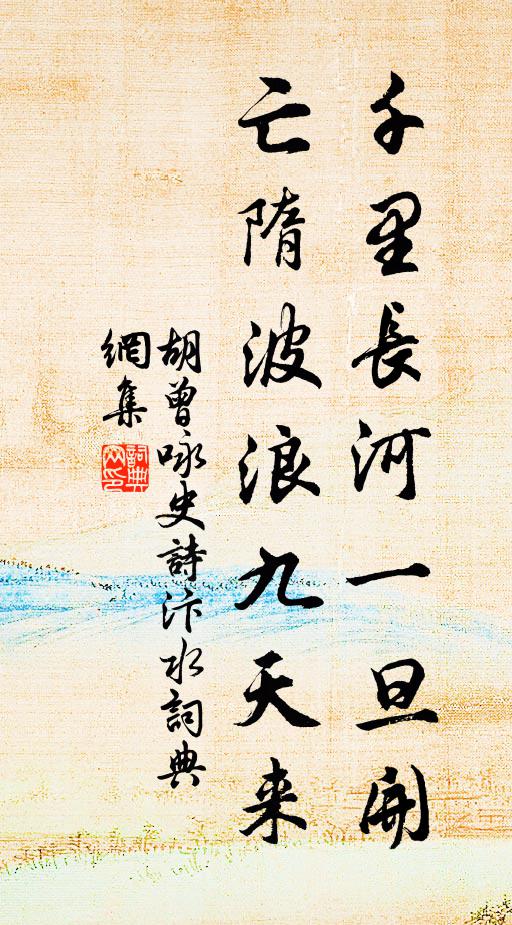 千里長河一旦開
亡隋波浪九天来
胡曾咏史詩汴水詞典
網集
詞典
网印